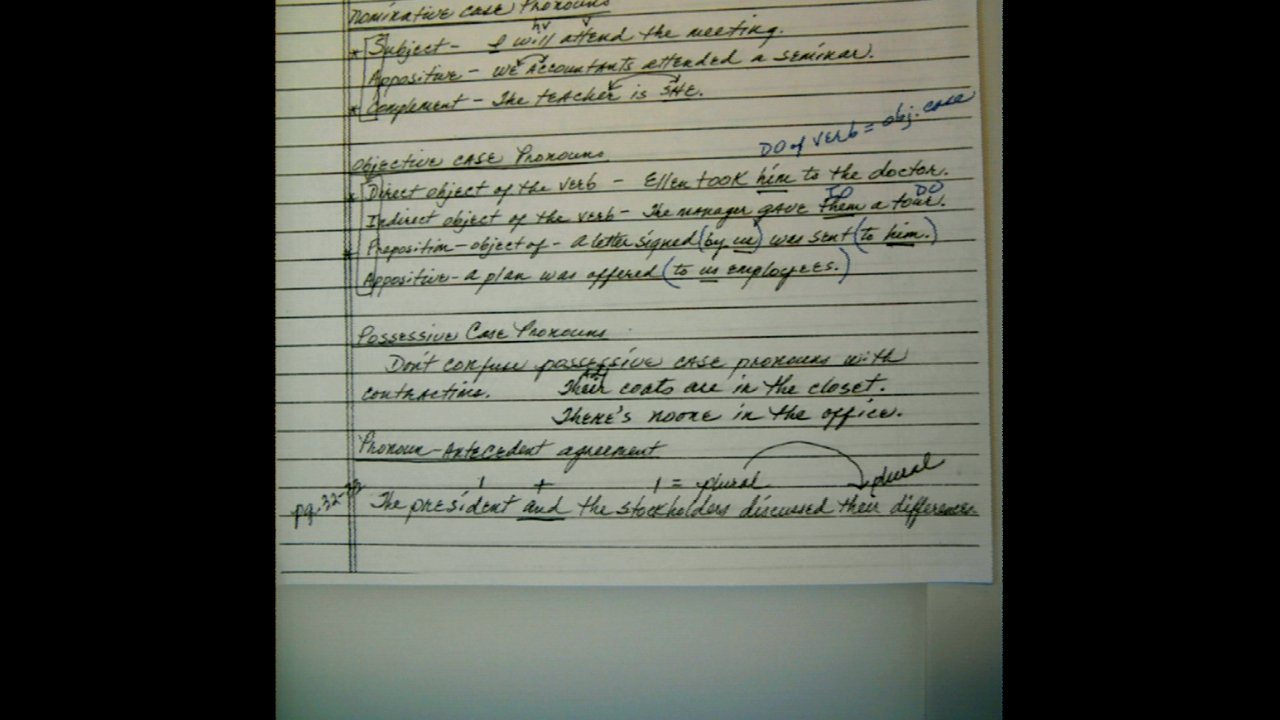 Nominative case Pronouns
hv v
* Subject - I will attend the meeting.
Appositive - we Accountants attended a seminar.
* Complement - The teacher is SHE.
DO of verb = obj. case
Objective case Pronouns
* Direct object of the verb - Ellen took him to the doctor.
IO DO
Indirect object of the verb - The manager gave them a tour.
* Preposition - object of - a letter signed (by us) was sent (to him.)
Appositive - a plan was offered (to us employees.)
Possessive Case Pronouns
Don't confuse possessive case pronouns with
contractions. Their coats are in the closet.
There's noone in the office.
Pronoun - Antecedent agreement
1 + 1 = plural plural
pg. 32-
The president and the stockholders discussed their differences.